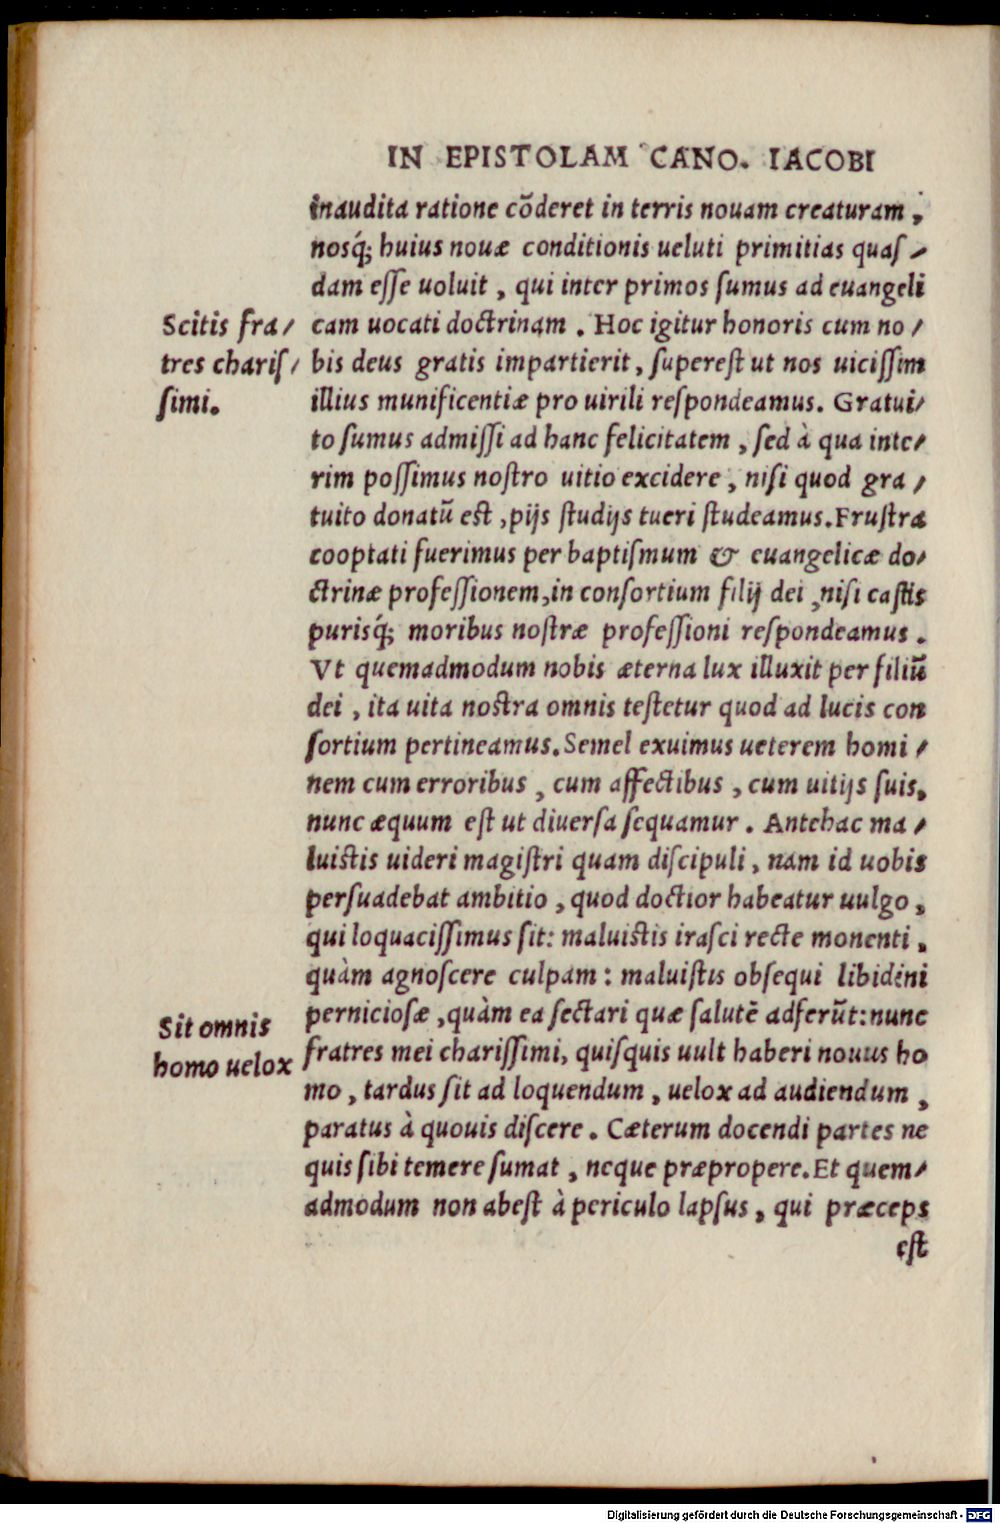 IN EPISTOLAM CANO. IACOBI
inaudita ratione cõderet in terris nouam creaturam,
nosq́; huius nouæ conditionis ueluti primitias quaſ/
dam eſſe uoluit, qui inter primos ſumus ad euangeli
Scitis fra/
tres chariſ/
ſimi.
cam uocati doctrinam. Hoc igitur honoris cum no/
bis deus gratis impartierit, ſupereſt ut nos uiciſſim
illius munificentiæ pro uirili reſpondeamus. Gratui/
to ſumus admiſſi ad hanc felicitatem, ſed à qua inte/
rim poſſimus noſtro uitio excidere, niſi quod gra/
tuito donatũ eſt, pijs ſtudijs tueri ſtudeamus. Fruſtra
cooptati fuerimus per baptiſmum & euangelicæ do/
ctrinæ profeſſionem, in conſortium filij dei, niſi caſtis
purisq́; moribus noſtræ profeſſioni reſpondeamus.
Vt quemadmodum nobis æterna lux illuxit per filiũ
dei, ita uita noſtra omnis teſtetur quod ad lucis con
ſortium pertineamus. Semel exuimus ueterem homi/
nem cum erroribus, cum affectibus, cum uitijs ſuis,
nunc æquum eſt ut diuerſa ſequamur. Antehac ma/
luiſtis uideri magiſtri quam diſcipuli, nam id uobis
perſuadebat ambitio, quod doctior habeatur uulgo,
qui loquaciſſimus ſit: maluiſtis iraſci recte monenti,
quàm agnoſcere culpam: maluiſtis obſequi libidini
pernicioſæ, quàm ea ſectari quæ ſalutẽ adferũt: nunc
Sit omnis
homo uelox
fratres mei chariſſimi, quiſquis uult haberi nouus ho
mo, tardus ſit ad loquendum, uelox ad audiendum,
paratus à quouis diſcere. Cæterum docendi partes ne
quis ſibi temere ſumat, neque præpropere. Et quem/
admodum non abeſt à periculo lapſus, qui præceps
eſt
Digitalisierung gefördert durch die Deutsche Forschungsgemeinschaft - DFG